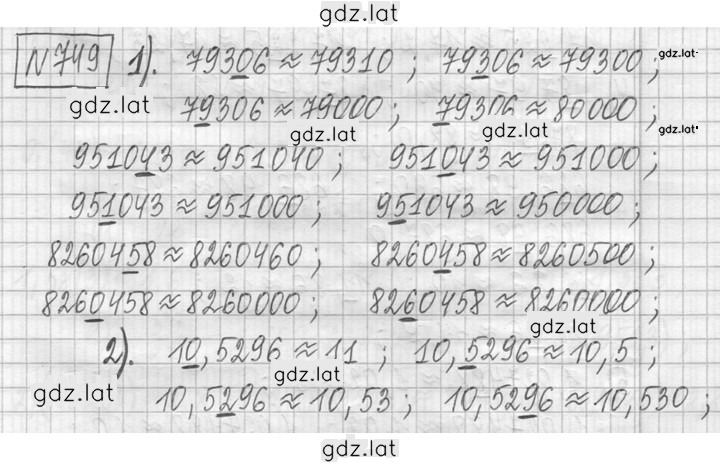 gdz.lat
№749 1). 79306 ≈ 79310 ; 79306 ≈ 79300 ; gdz.lat
gdz.lat 79306 ≈ 79000 ; gdz.lat 79306 ≈ 80000 ; gdz.lat gdz.lat
951043 ≈ 951040 ; 951043 ≈ 951000 ;
951043 ≈ 951000 ; 951043 ≈ 950000 ;
8260458 ≈ 8260460 ; 8260458 ≈ 8260500 ;
8260458 ≈ 8260000 ; 8260458 ≈ 8260000 ;
gdz.lat
2). 10,5296 ≈ 11 ; 10,5296 ≈ 10,5 ;
gdz.lat gdz.lat
10,5296 ≈ 10,53 ; 10,5296 ≈ 10,530 ;
gdz.lat